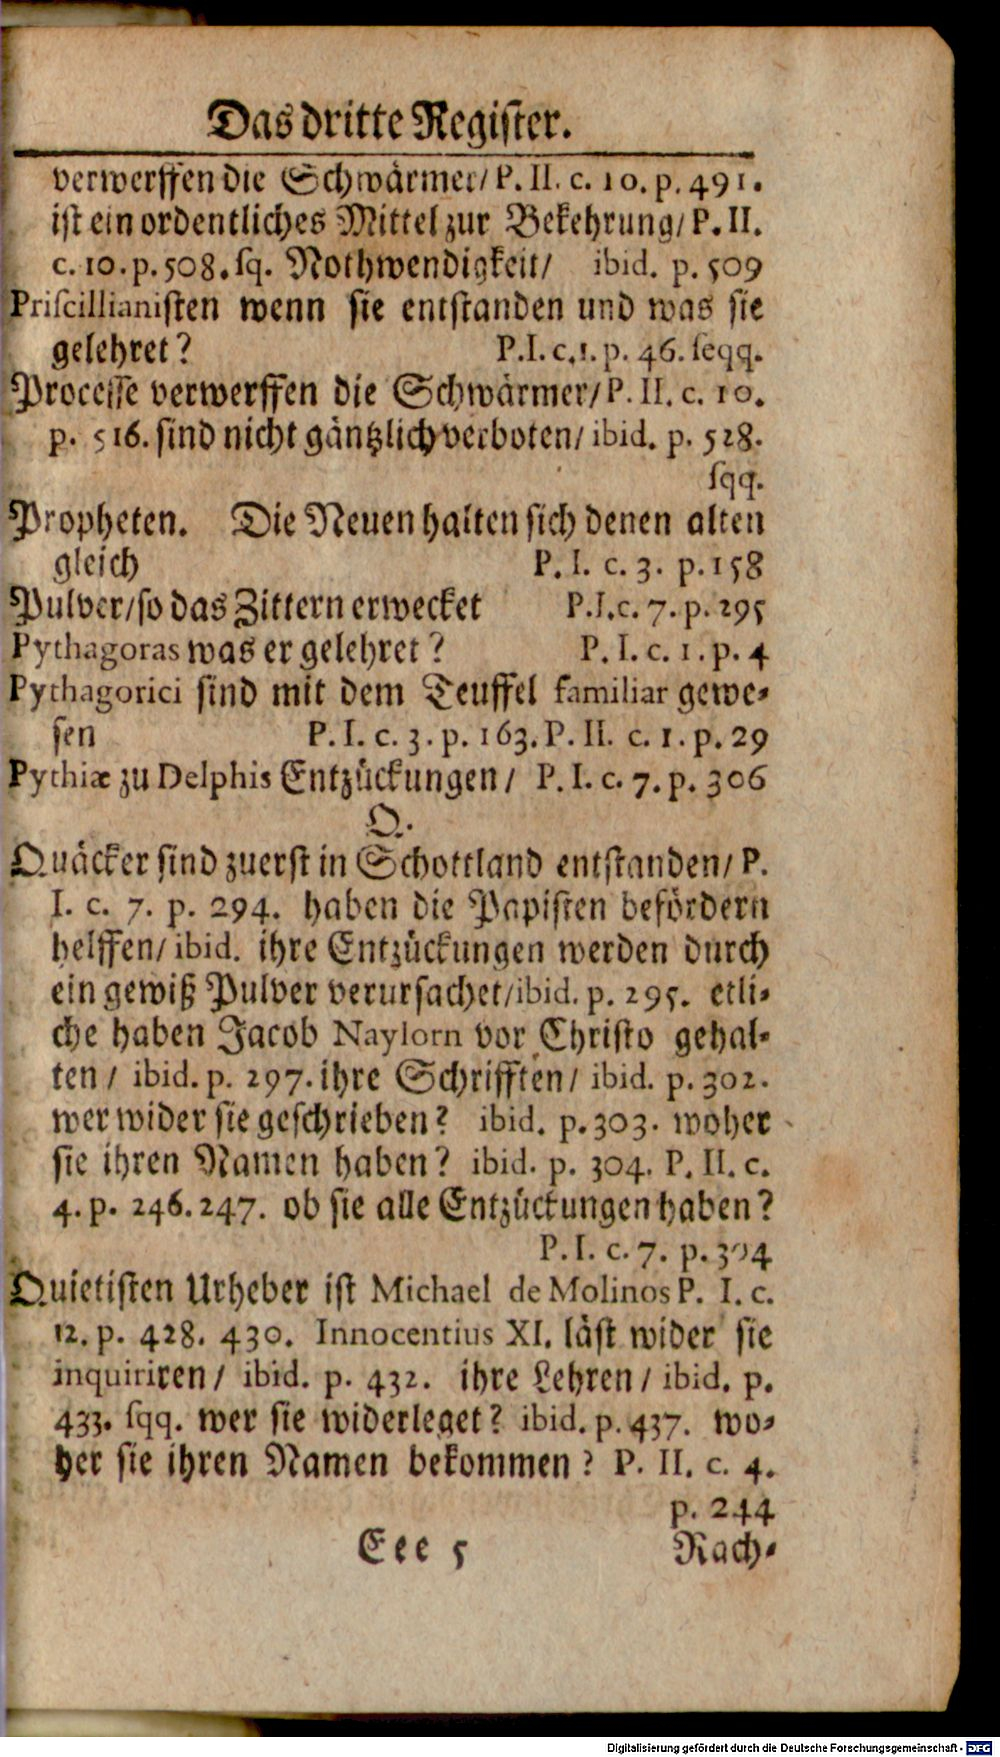 Das dritte Register.
verwerffen die Schwärmer/ P. II. c. 10. p. 491.
ist ein ordentliches Mittel zur Bekehrung/ P. II.
c. 10. p. 508. sq. Nothwendigkeit/ ibid. p. 509
Priscillianisten wenn sie entstanden und was sie
gelehret? P. I. c. 1. p. 46. seqq.
Processe verwerffen die Schwärmer/ P. II. c. 10.
p. 516. sind nicht gäntzlich verboten/ ibid. p. 528.
sqq.
Propheten. Die Neuen halten sich denen alten
gleich P. I. c. 3. p. 158
Pulver/ so das Zittern erwecket P. I. c. 7. p. 295
Pythagoras was er gelehret? P. I. c. 1. p. 4
Pythagorici sind mit dem Teuffel familiar gewe-
sen P. I. c. 3. p. 163. P. II. c. 1. p. 29
Pythiæ zu Delphis Entzückungen/ P. I. c. 7. p. 306
Q.
Quäcker sind zuerst in Schottland entstanden/ P.
I. c. 7. p. 294. haben die Papisten befördern
helffen/ ibid. ihre Entzückungen werden durch
ein gewiß Pulver verursachet/ ibid. p. 295. etli-
che haben Jacob Naylorn vor Christo gehal-
ten/ ibid. p. 297. ihre Schrifften/ ibid. p. 302.
wer wider sie geschrieben? ibid. p. 303. woher
sie ihren Namen haben? ibid. p. 304. P. II. c.
4. p. 246. 247. ob sie alle Entzückungen haben?
P. I. c. 7. p. 304
Quietisten Urheber ist Michael de Molinos P. I. c.
12. p. 428. 430. Innocentius XI. läst wider sie
inquiriren/ ibid. p. 432. ihre Lehren/ ibid. p.
433. sqq. wer sie widerleget? ibid. p. 437. wo-
her sie ihren Namen bekommen? P. II. c. 4.
p. 244
Eee 5 Rach-
Digitalisierung gefördert durch die Deutsche Forschungsgemeinschaft - DFG